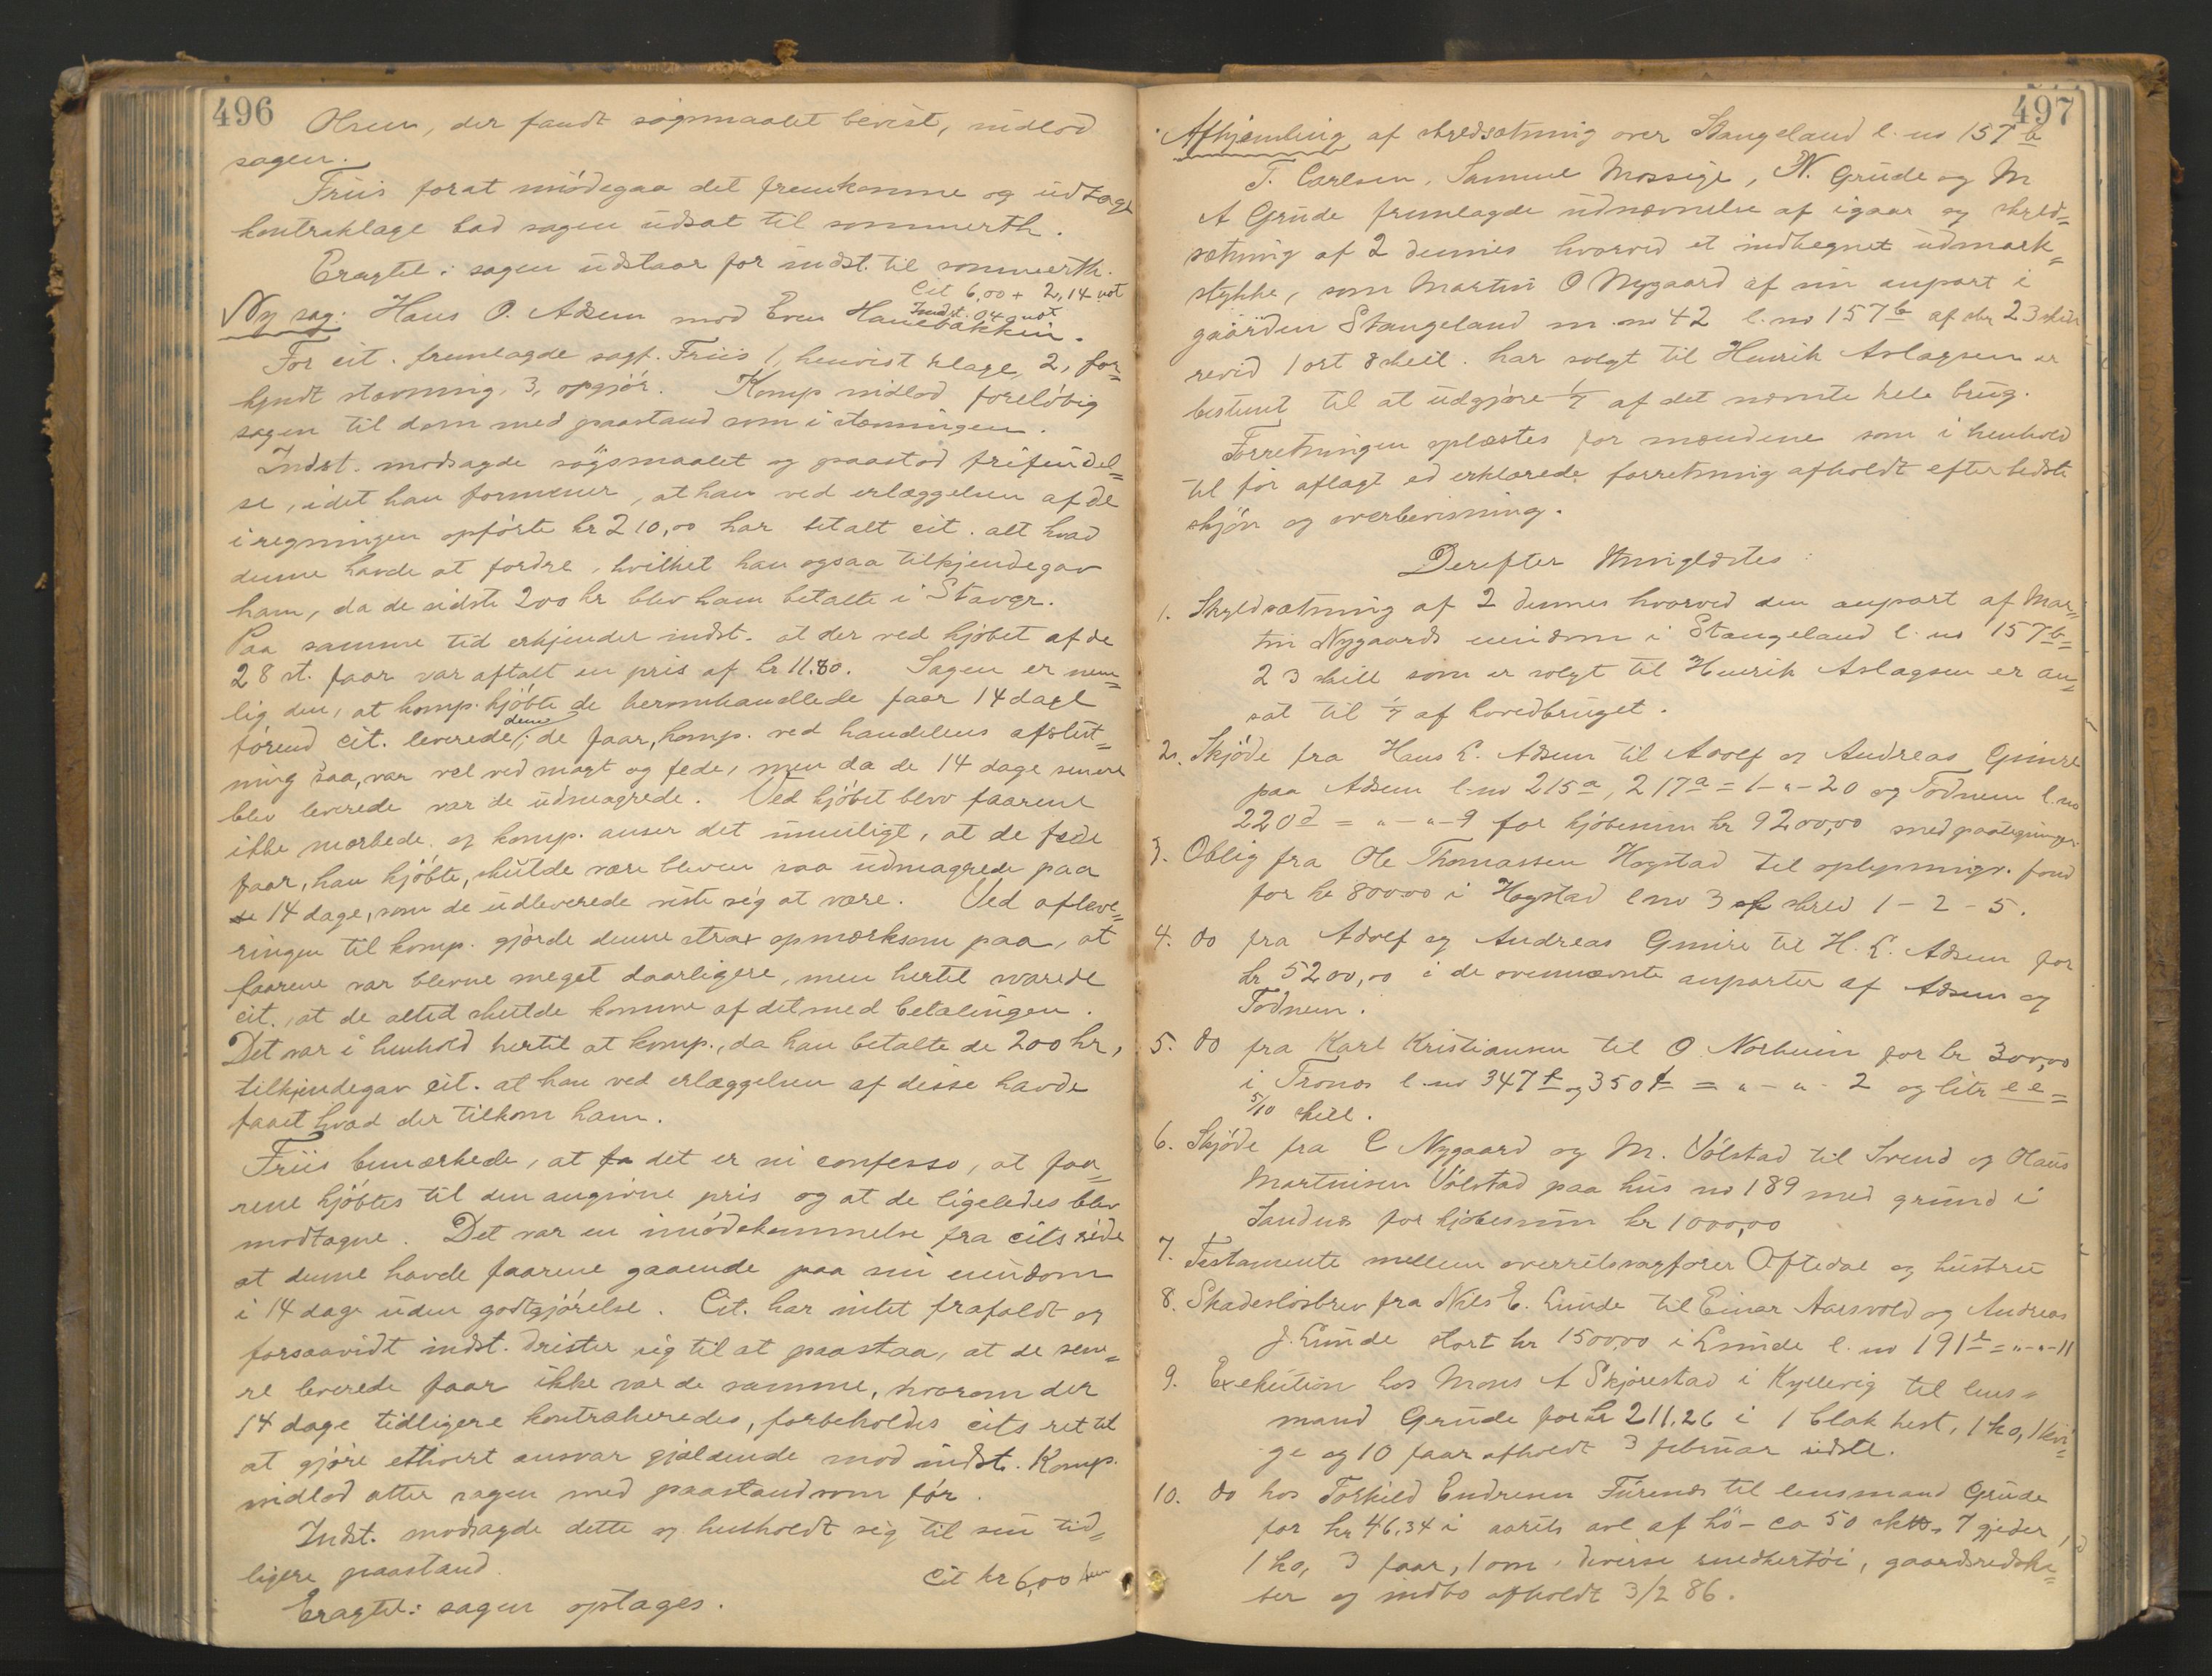 496
Olsen, der fandt søgsmaalet bevist, indlod
sagen.
Friis forat imødegaa det fremkomne og udtage
kontraklage bad sagen udsat til sommerth.
Eragtet: sagen udstaar for indst. til sommerth.
Cit 6,00 + 2,14 not
Indst. 04 not
Ny sag: Hans O. Adsen mod Even Hanebakken.
For cit. fremlagde sagf. Friis 1, henvist klage, 2, for-
kyndt stævning, 3, opgjør. Komp indlod foreløbig
sagen til dom med paastand som i stævningen.
Indst. modsagde søgsmaalet og paastod frifindel-
se, idet han formener, at han ved erlæggelsen af de
i regningen opførte kr 210,00 har betalt cit. alt hvad
denne havde at fordre, hvilket han ogsaa tilkjendegav
ham, da de sidste 200 kr blev ham betalte i Stavgr.
Paa samme tid erkjender indst. at der ved kjøbet af de
28 st. faar var aftalt en pris af kr 11.80. Sagen er nem-
lig den, at komp. kjøbte de heromhandlede faar 14 dage
førend cit. leverede dem; de faar, komp. ved handelens afslut-
ning saa, var vel ved magt og fede, men da de 14 dage senere
blev leverede var de udmagrede. Ved kjøbet blev faarene
ikke mærkede og komp. anser det umuligt, at de fede
faar, han kjøbte, skulde være bleven saa udmagrede paa
de 14 dage, som de udleverede viste sig at være. Ved afleve-
ringen til komp. gjorde denne strax opmærksom paa, at
faarene var blevne meget daarligere, men hertil svarede
cit., at de altid skulde komme af det med betalingen.
Det var i henhold hertil at komp., da han betalte de 200 kr,
tilkjendegav cit. at han ved erlæggelsen af disse havde
faaet hvad der tilkom ham.
Friis bemærkede, at fa det er in confesso, at faa-
rene kjøbtes til den angivne pris og at de ligeledes blev
modtagne. Det var en imødekommelse fra cits side
at denne havde faarene gaaende paa sin eiendom
i 14 dage uden godtgjørelse. Cit. har intet frafaldt og
forsaavidt indst. drister sig til at paastaa, at de sene-
re leverede faar ikke var de samme, hvorom der
14 dage tidligere kontraheredes, forbeholdes cits ret til
at gjøre ethvert ansvar gjældende mod indst. Komp.
indlod atter sagen med paastand som før.
Indst. modsagde dette og henholdt sig til sin tid-
ligere paastand.
Cit kr 6,00
Eragtet: sagen optages.
497
Afhjemling af skyldsætning over Stangeland l. no 157 b
T. Carlsen, Samuel Mossige, N. Grude og M
A Grude fremlagde udnævnelse af igaar og skyld-
sætning af 2 dennes hvorved et indhegnet udmark-
stykke, som Martin O Nygaard af sin anpart i
gaarden Stangeland m. no 42 l. no 157 b af skr 23 skill
revid 1 ort 8 skill. har solgt til Henrik Aslagsen er
bestemt til at udgjøre 1/7 af det nævnte hele brug.
Forretningen oplæstes for mændene som i henhold
til før aflagt ed erklærede forretning afholdt efter bedste
skjøn og overbevisning.
Derefter thinglæstes:
1. Skyldsætning af 2 dennes hvorved den anpart af Mar-
tin Nygaards eiendom i Stangeland l. no 157 b =
23 skill som er solgt til Henrik Aslagsen er an-
sat til 1/7 af hovedbruget.
2. Skjøde fra Hans L. Adsen til Adolf og Andreas Gimre
paa Adsen l. no 215 a, 217 a = 1-"-20 og Todnem l. no
220 d = "-"-9 for kjøbesum kr 9200,00 med paategninger.
3. Oblig fra Ole Thomassen Hogstad til oplysningsv. fond
for kr 800,00 i Hogstad l no 3 af skyld 1-2-5.
4. do fra Adolf og Andreas Gimre til H. L. Adsen for
kr 5200,00 i de ovennævnte anparter af Adsen og
Todnem.
5. do fra Karl Kristiansen til O. Norheim for kr 300,00
i Tronos l. no 347 f og 350 f = "-"-2 og litr ee =
5/10 skill.
6. Skjøde fra C Nygaard og M. Vølstad til Svend og Olaus
Martinisen Vølstad paa hus no 189 med grund i
Sandnes for kjøbesum kr 1000,00
7. Testamente mellem overretssagfører Oftedal og hustru
8. Skadesløsbrev fra Nils E. Lunde til Einar Aarsvold og Andreas
J. Lunde stort kr 1500,00 i Lunde l. no 191 e = "-"-11
9. Exekution hos Mons A Skjørestad i Kyllevig til lens-
mand Grude for kr 211,26 i 1 blak hest, 1 ko, 1 kvi-
ge og 10 faar afholdt 3 februar sidstl.
10. do hos Torkild Endresen Furenes til lensmand Grude
for kr 46,34 i aarets avl af hø - ca 50 sktt, 7 gjeder,
1 ko, 3 faar, 1 om, diverse snedkertøi, gaardsredska-
ber og indbo afholdt 3/2 86.